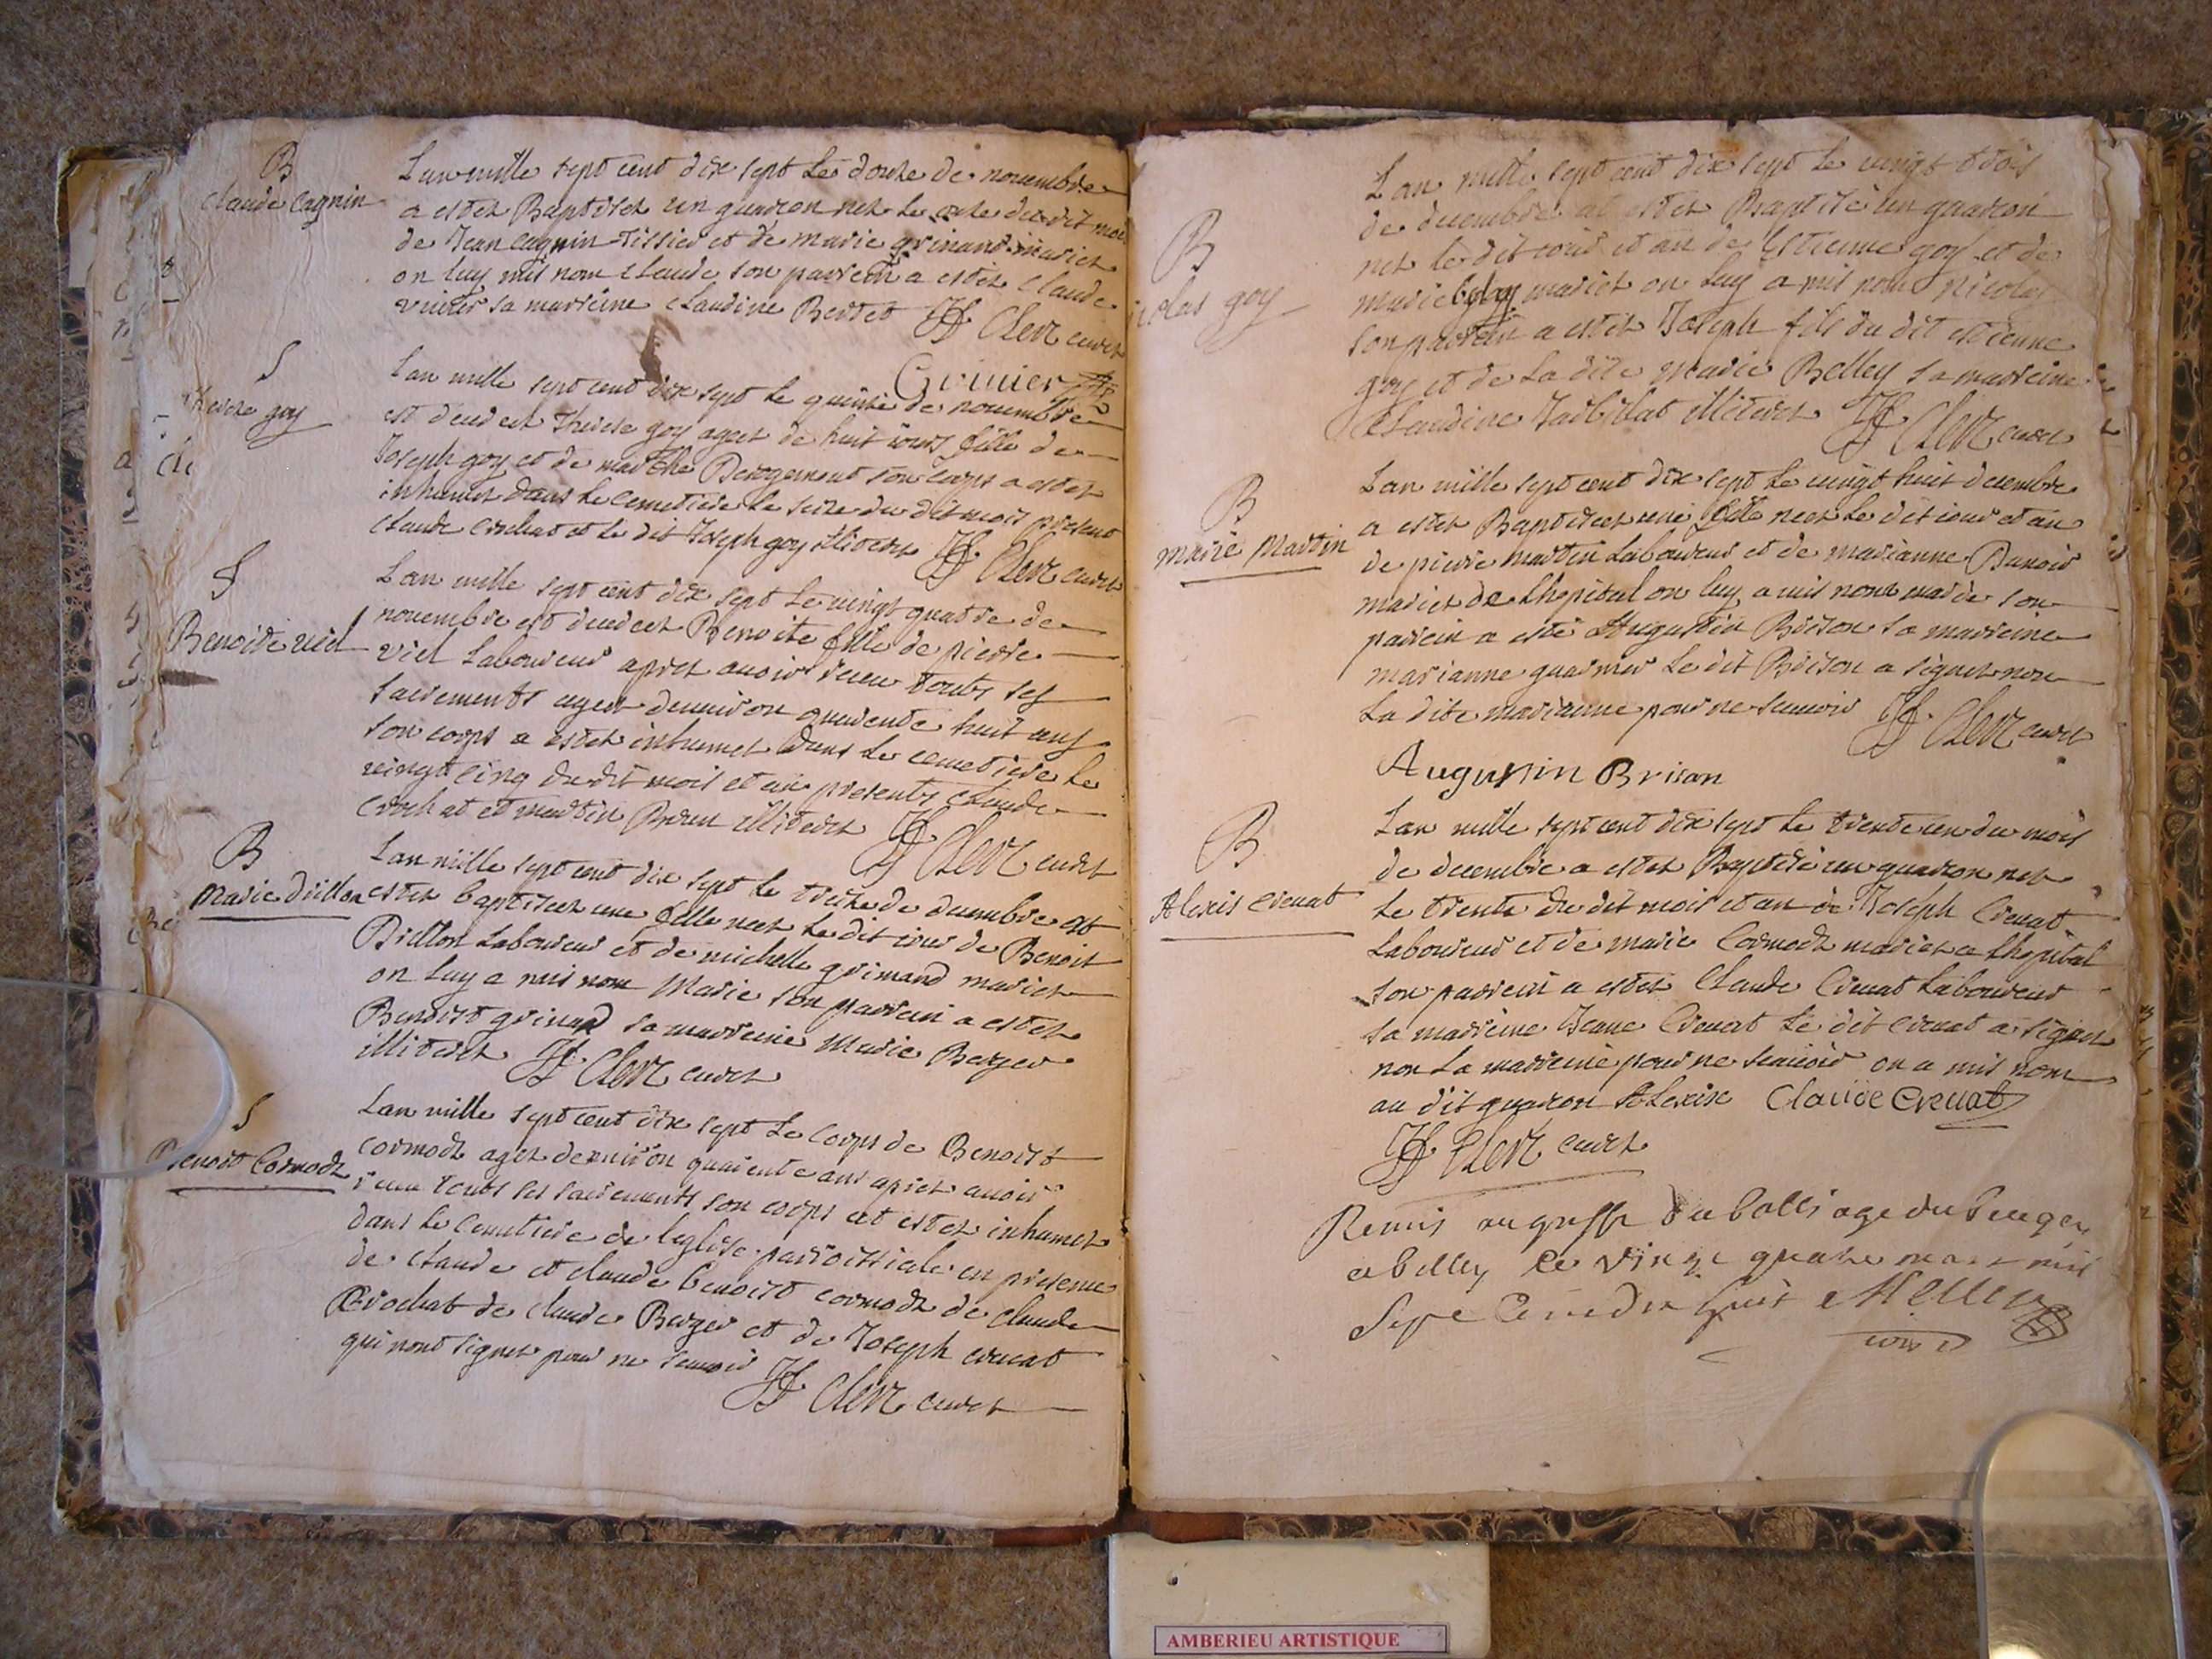 B
Claude Cagnin
Lan mille sept cent dix sept Le douze de nouembre
a estez Baptisez un guarcon nez Le onze du dit moi
de Jean Cagnin Tissier et de Marie grinand mariez
on luy mis nom Claude son parrein a estez Claude
sa marreine Claudine Bertet JF Clerc curez
S
Therese goy
Lan mille sept cent dix sept Le quinze de nouembre
est decedeez Therese goy ageez de huit iours fille de
Joseph goy et de marthe son corps a estez
inhumez dans Le Cemetiere Le seize du dit mois present
Claude Crochat et Le dit Joseph goy illiterez JF Clerc curez
S
Benoite viel
Lan mille sept cent dix sept Le vingt quatre de
nouembre est decedeez Benoite fille de pierre
viel Laboureur aprez auoir receu touts ses
sacrements ageez denuiron quarente huit ans
son corps a estez inhumez dans Le cemetiere Le
vingt cinq du dit mois et an presents Claude
Crochat et martin Brun illiterez JF Clerc curez
B
Marie Drillon
Lan mille sept cent dix sept Le treize de decembre at
estez baptiseez une fille neez Le dit iour de Benoit
Drillon Laboureur et de michelle grimand mariez
on Luy a mis nom Marie son parrein a estez
Benoist grinand sa marreine Marie Berger
illiterez JF Clerc curez
S
Benoist Cormodz
Lan mille sept cent dix sept Le Corps de Benoist
Cormodz agez denuiron quarente ans aprez auoir
receu touts ses sacrements son corps at estez inhumez
dans Le Cemetiere de leglise parroissiale en presence
de Claude et Claude Benoist Cormodz de Claude
Crochat de Claude Berger et de Joseph Creuat
qui nont signez pour ne scauoir JF Clerc curez
B
icolas goy
Lan mille sept cent dix sept Le vingt trois
de decembre at estez Baptisé un guarcon
nez Le dit iour et an de Estienne goy et de
marie mariez on Luy a mis nom nicolas
son parrein a estez Joseph fils du dit estienne
goy et de La dite Marie Belley sa marreine
Claudine illiterez JF Clerc curez
B
Marie Martin
Lan mille sept cent dix sept Le vingt huit decembre
a estez Baptiseez une fille neez Le dit iour et an
de pierre martin Laboureur et de marianne
mariez de Lhopital on luy a mis nom marie son
parrein a esté Augustin Brison sa marreine
marianne Le dit Brison a signez non
La dite marreine pour ne scauoir JF Clerc curez
Augustin Brison
B
Alexis Creuat
Lan mille sept cent dix sept Le trente un du mois
de decembre a estez Baptisé un guarcon nez
Le trente du dit mois et an de Joseph Creuat
Laboureur et de marie Cormodz mariez a Lhopital
son parrein a estez Claude Creuat Laboureur
sa marreine Jeanne Creuat Le dit Creuat a signez
non La marreine pour ne scauoir on a mis nom
au dit guarcon Alexis Claude Creuat
JF Clerc curez
Remis au greffe du balliage du beugey
a belley le vingt quatre mars mil
Sept Cent dix huit
AMBERIEU ARTISTIQUE